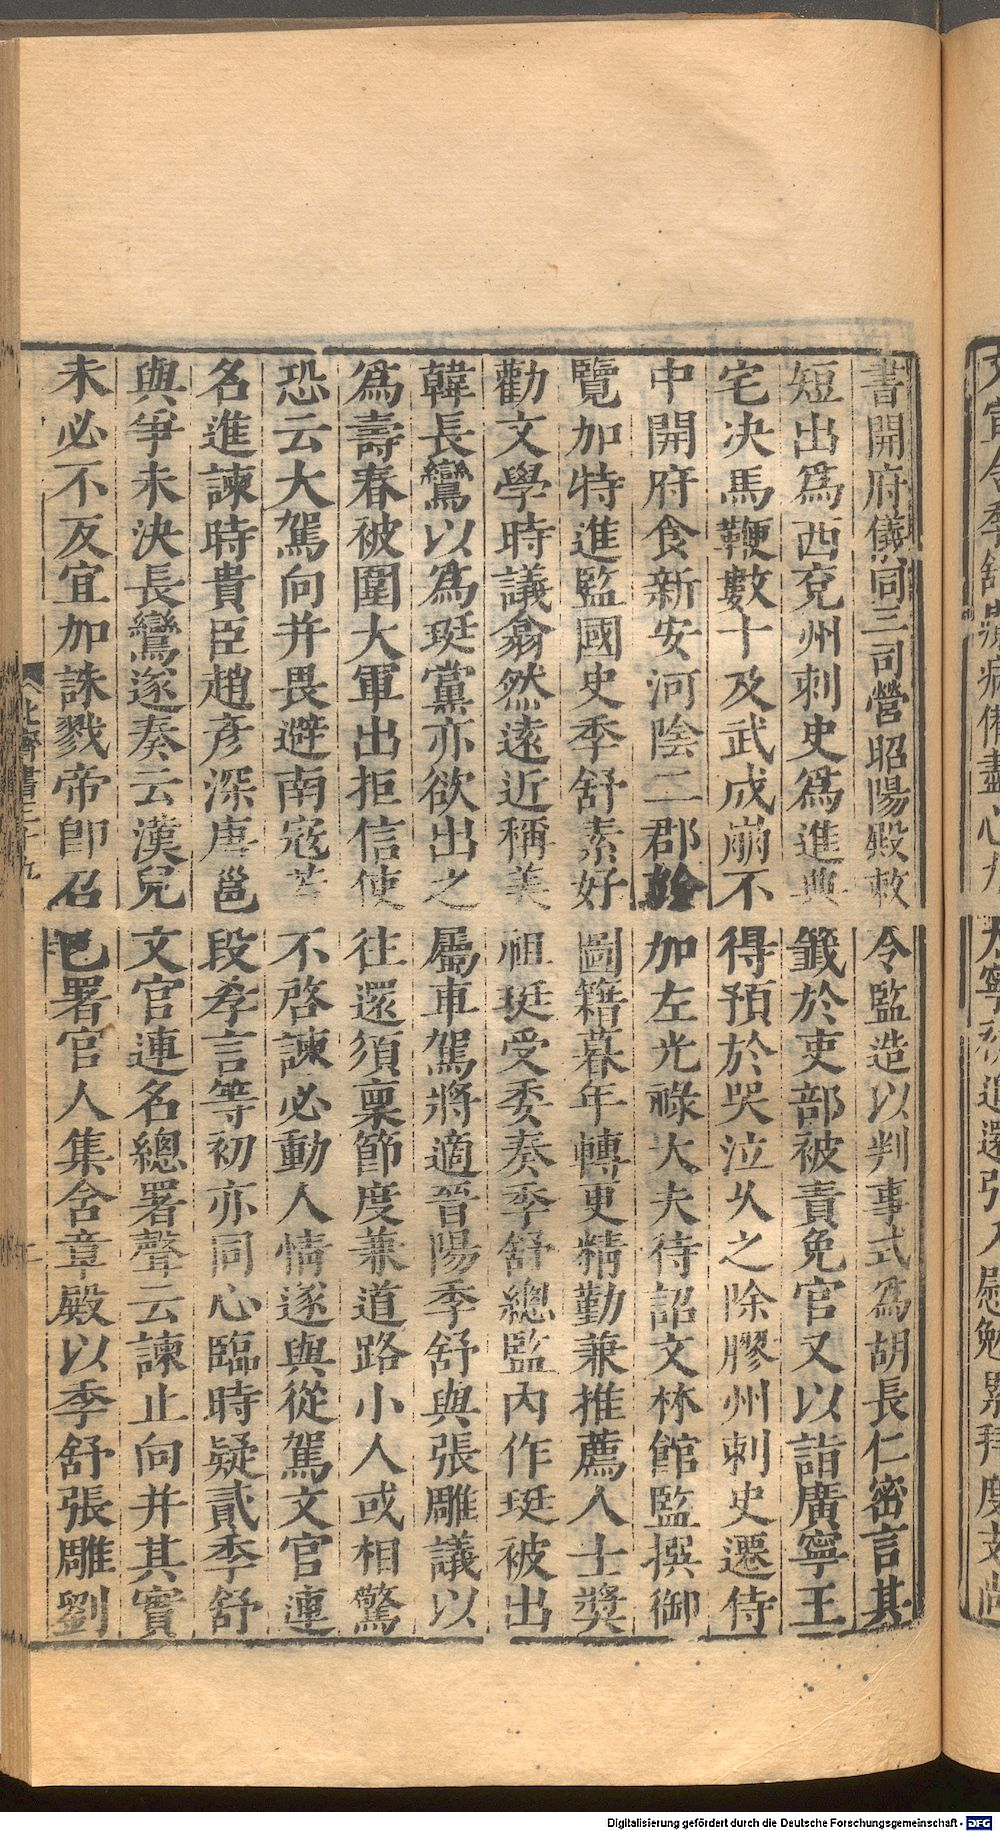 書開府儀同三司營昭陽殿敕令監造以判事式爲胡長仁密言其
短出爲西兗州刺史爲進典籤於吏部被責免官又以詣廣寧王
宅决馬鞭數十及武成崩不得預於哭泣乆之除膠州刺史遷侍
中開府食新安河陰二郡幹加左光祿大夫待詔文林館監撰御
覽加特進監國史季舒素好圖籍暮年轉更精勤兼推薦人士獎
勸文學時議翕然遠近稱美祖珽受委奏季舒總監內作珽被出
韓長鸞以爲珽黨亦欲出之屬車駕將適晉陽季舒與張雕議以
爲壽春被圍大軍出拒信使往還須稟節度兼道路小人或相驚
恐云大駕向并畏避南寇若不啓諫必動人情遂與從駕文官連
名進諫時貴臣趙彥深唐邕段孝言等初亦同心臨時疑貳季舒
與爭未決長鸞遂奏云漢兒文官連名總署聲云諫止向并其實
未必不反宜加誅戮帝卽召已署官人集含章殿以季舒張雕劉
北齊書三十九
Digitalisierung gefördert durch die Deutsche Forschungsgemeinschaft - DFG